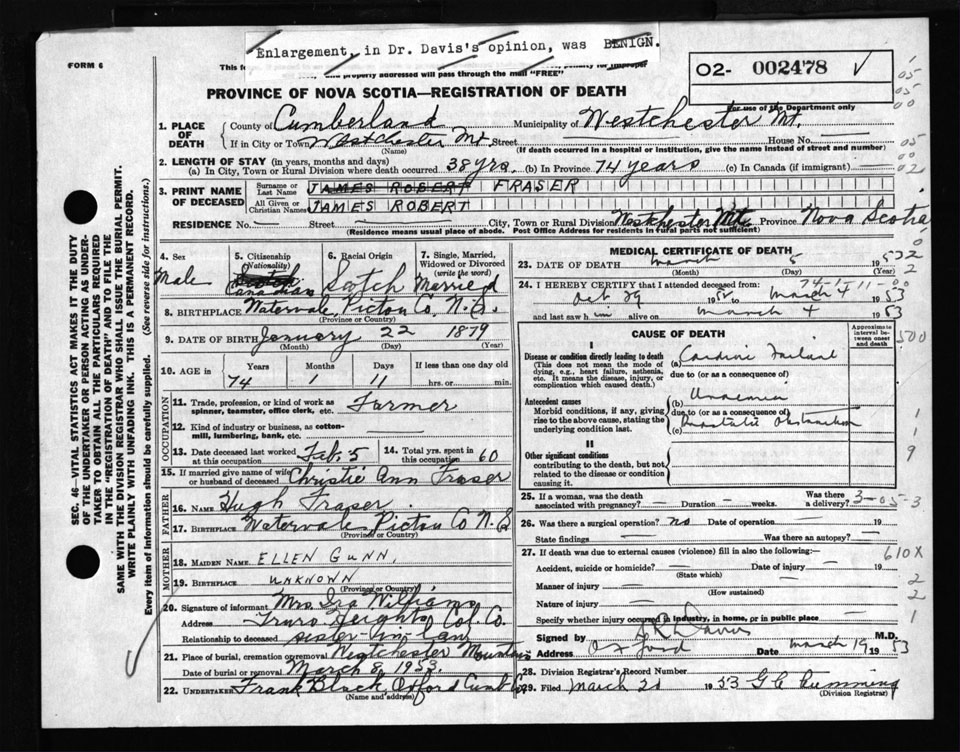 Enlargement, in Dr. Davis's opinion, was BENIGN.
FORM 6
and properly addressed will pass through the mail "FREE"
02- 002478
PROVINCE OF NOVA SCOTIA—REGISTRATION OF DEATH
For use of the Department only
1. PLACE OF DEATH
County of Cumberland Municipality of Westchester Mt.
If in City or Town Westchester Mt. Street House No.
(Name) (If death occurred in a hospital or institution, give the name instead of street and number)
2. LENGTH OF STAY (in years, months and days)
(a) In City, Town or Rural Division where death occurred 38 yrs. (b) In Province 74 years (c) In Canada (if immigrant)
3. PRINT NAME OF DECEASED
Surname or Last Name JAMES ROBERT FRASER
All Given or Christian Names JAMES ROBERT
RESIDENCE No. Street City, Town or Rural Division Westchester Mt. Province Nova Scotia
(Residence means usual place of abode. Post Office Address for residents in rural parts not sufficient)
4. Sex Male
5. Citizenship (Nationality) Scotch Canadian
6. Racial Origin Scotch
7. Single, Married, Widowed or Divorced (write the word) Married
8. BIRTHPLACE Watervale, Pictou Co. N.S.
(Province or Country)
9. DATE OF BIRTH January 22 1879
(Month) (Day) (Year)
10. AGE in Years Months Days If less than one day old
74 1 11 hrs. or min.
OCCUPATION
11. Trade, profession, or kind of work as spinner, teamster, office clerk, etc. Farmer
12. Kind of industry or business, as cotton-mill, lumbering, bank, etc.
13. Date deceased last worked at this occupation Feb. 5 14. Total yrs. spent in this occupation 60
15. If married give name of wife or husband of deceased Christie Ann Fraser
FATHER
16. Name Hugh Fraser
17. BIRTHPLACE Watervale Pictou Co N.S
(Province or Country)
MOTHER
18. MAIDEN NAME ELLEN GUNN.
19. BIRTHPLACE UNKNOWN
(Province or Country)
20. Signature of informant Mrs. Ira Williams
Address Truro Heights Col. Co.
Relationship to deceased sister-in-law
21. Place of burial, cremation or removal Westchester Mountain
Date of burial or removal March 8, 1953.
22. UNDERTAKER Frank Black, Oxford Cumb Co
(Name and address)
MEDICAL CERTIFICATE OF DEATH
23. DATE OF DEATH March 5 1953
(Month) (Day) (Year)
24. I HEREBY CERTIFY that I attended deceased from:
Oct 29 1952 to March 4 1953
and last saw h im alive on March 4 1953
CAUSE OF DEATH
Approximate interval between onset and death
I
Disease or condition directly leading to death
(This does not mean the mode of dying, e.g., heart failure, asthenia, etc. It means the disease, injury, or complication which caused death.)
(a) Cardiac Failure
due to (or as a consequence of)
Antecedent causes
Morbid conditions, if any, giving rise to the above cause, stating the underlying condition last.
(b) Uraemia
due to (or as a consequence of)
(c) Prostatic Obstruction
II
Other significant conditions
contributing to the death, but not related to the disease or condition causing it.
25. If a woman, was the death associated with pregnancy? Duration weeks. Was there a delivery?
26. Was there a surgical operation? no Date of operation 19
State findings Was there an autopsy?
27. If death was due to external causes (violence) fill in also the following:—
Accident, suicide or homicide? Date of injury 19
(State which)
Manner of injury
(How sustained)
Nature of injury
Specify whether injury occurred in industry, in home, or in public place
Signed by J R Davis M.D.
Address Oxford Date March 19 1953
28. Division Registrar's Record Number
29. Filed March 21 1953 G C Cumming
(Division Registrar)
74-1-11-00
500
1
1
9
3-05-3
610X
2
2
1
SEC. 46—VITAL STATISTICS ACT MAKES IT THE DUTY
OF THE UNDERTAKER OR PERSON ACTING AS UNDER-
TAKER TO OBTAIN ALL THE PARTICULARS REQUIRED
IN THE "REGISTRATION OF DEATH" AND TO FILE THE
SAME WITH THE DIVISION REGISTRAR WHO SHALL ISSUE THE BURIAL PERMIT.
WRITE PLAINLY WITH UNFADING INK. THIS IS A PERMANENT RECORD.
Every item of information should be carefully supplied. (See reverse side for instructions.)